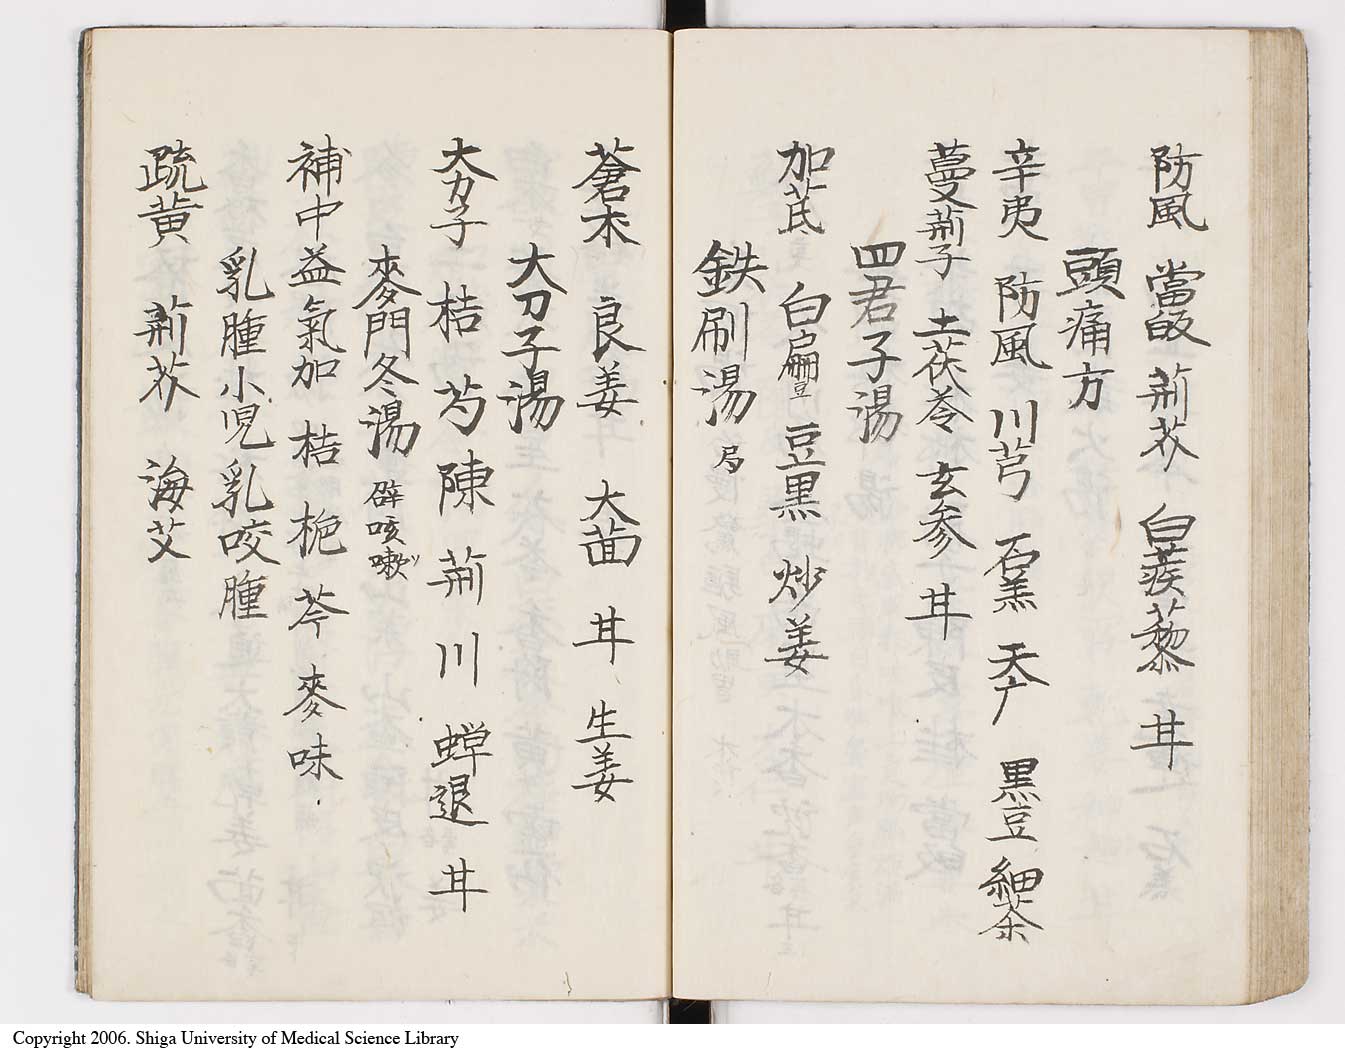 防風 當皈 荊芥 白蒺藜 甘
頭痛方
辛夷 防風 川芎 石羔 天广 黒豆 細茶
蔓荊子 土茯苓 玄参 甘
四君子湯
加芪 白扁豆 豆黒 炒姜
鉄刷湯 局
蒼朮 良姜 大茴 甘 生姜
大力子湯
大力子 桔 芍 陳 荊 川 蝉退 甘
麥門冬湯 咳嗽
補中益氣加 桔 梔 芩 麥 味
乳腫小児乳咬腫
硫黄 荊芥 海艾
Copyright 2006. Shiga University of Medical Science Library